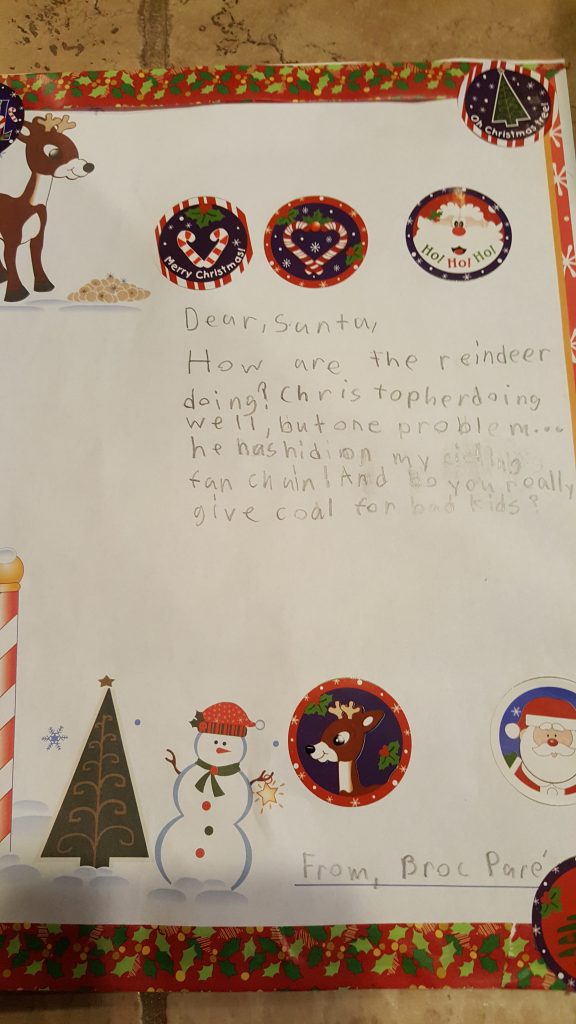 Oh Christmas tree!
Merry Christmas!
Ho! Ho! Ho!
Dear, Santa,
How are the reindeer
doing? Christopherdoing
well, but one problem...
he hashid on my
fan chain! And do you really
give coal for bad kids?
From, Broc Paré